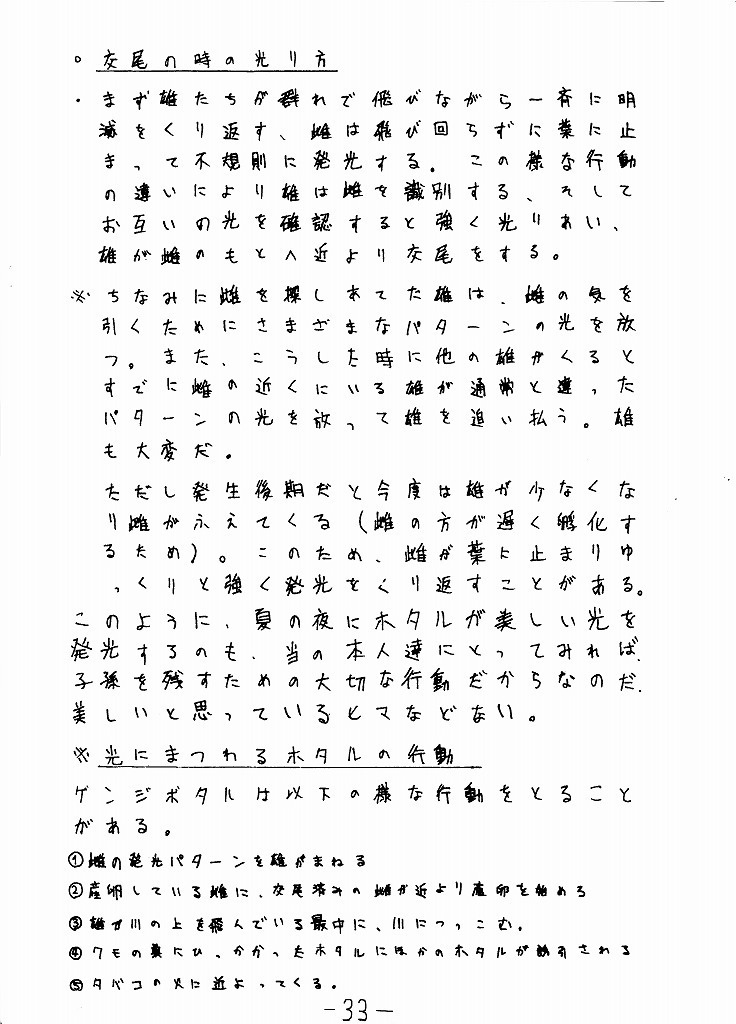 。交尾の時の光り方
・まず雄たちが群れで飛びながら一斉に明
滅をくり返す、雌は飛び回らずに葉に止
まって不規則に発光する。この様な行動
の違いにより雄は雌を識別する、そして
お互いの光を確認すると強く光りあい、
雄が雌のもとへ近より交尾をする。
※ちなみに雌を探しあてた雄は、雌の気を
引くためにさまざまなパターンの光を放
つ。また、こうした時に他の雄がくると
すでに雌の近くにいる雄が通常と違った
パターンの光を放って雄を追い払う。雄
も大変だ。
ただし発生後期だと今度は雄が少なくな
り雌がふえてくる(雌の方が遅く孵化す
るため)。このため、雌が葉に止まりゆ
っくりと強く発光をくり返すことがある。
このように、夏の夜にホタルが美しい光を
発光するのも、当の本人達にとってみれば、
子孫を残すための大切な行動だからなのだ、
美しいと思っているヒマなどない。
※光にまつわるホタルの行動
ゲンジボタルは以下の様な行動をとること
がある。
①雌の発光パターンを雄がまねる
②産卵している雌に、交尾済みの雌が近より産卵を始める
③雄が川の上を飛んでいる最中に、川につっこむ。
④クモの巣にひっかかったホタルにほかのホタルが誘引される
⑤タバコの火に近よってくる。
-33-